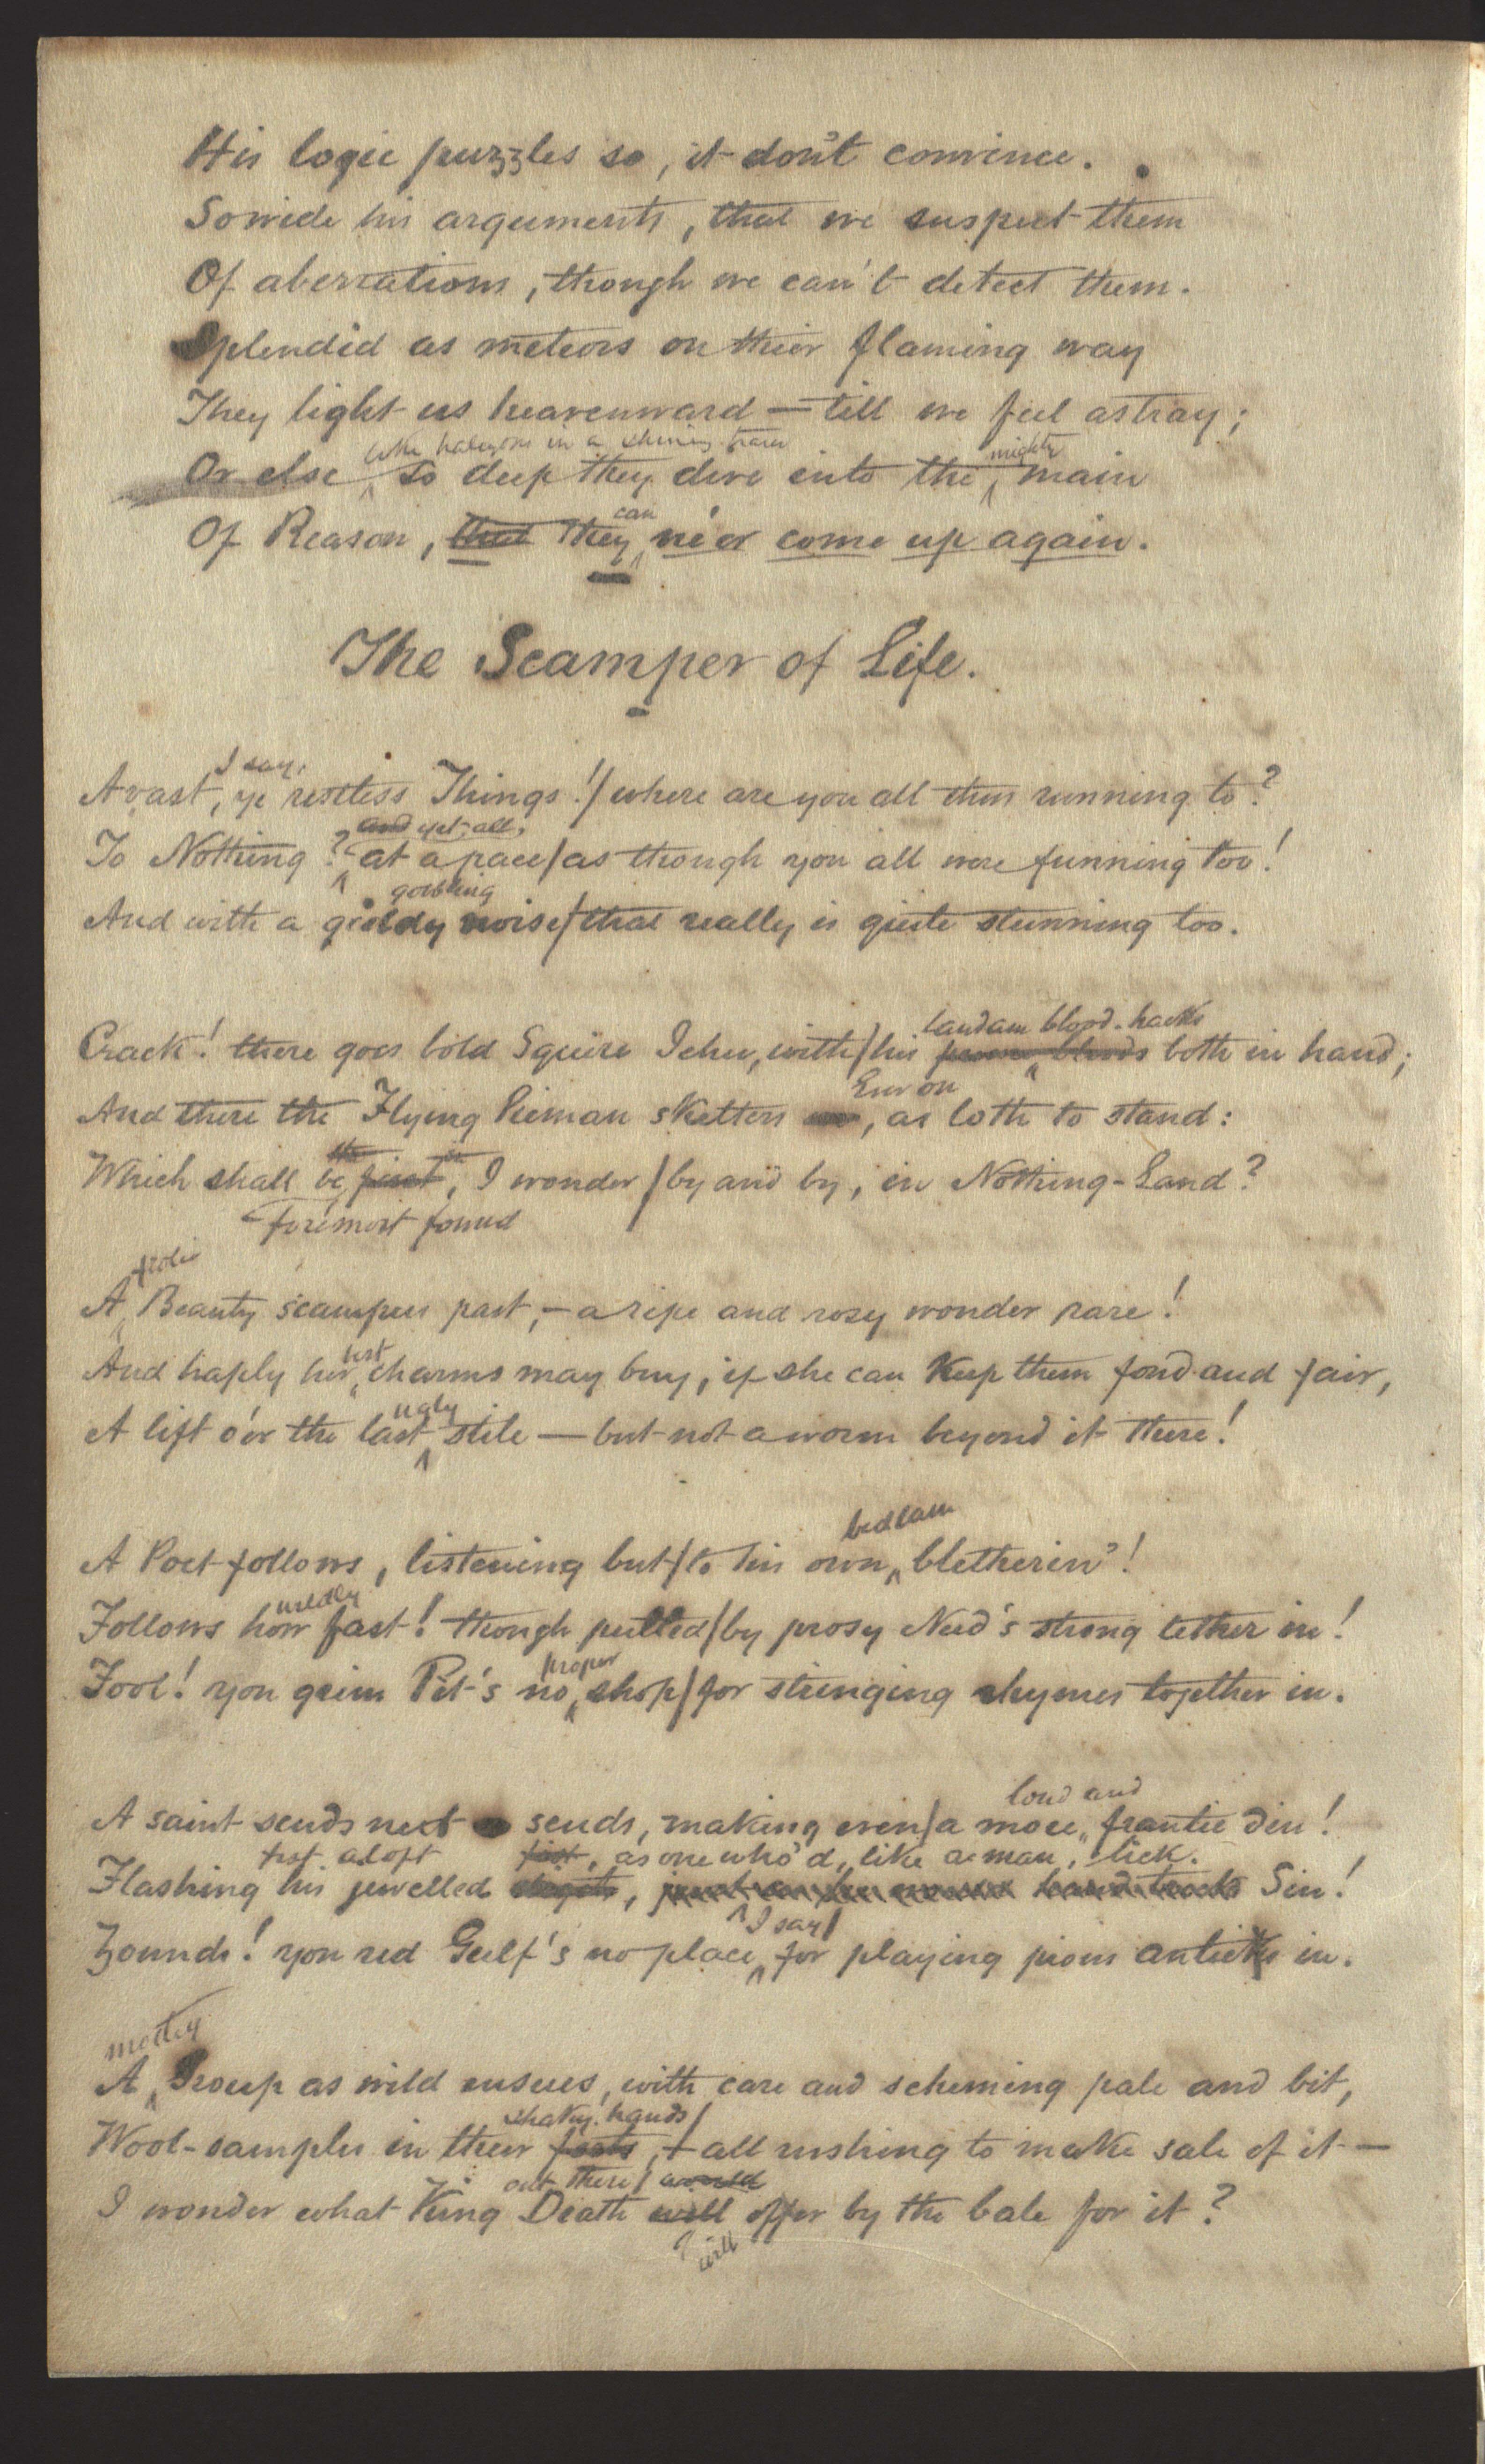 His logic puzzles so, it don't convince.
So wide his arguments, that we suspect them
Of aberrations, though we can't detect them.
Splendid as meteors on their flaming way
They light us heavenward — till we feel astray;
like halcyons in a shining train mighty
Or else so deep they dive into the main
can
Of Reason, that they ne'er come up again.
The Scamper of Life.
I say,
Avast, ye restless Things! / where are you all thus running to?
and yet, all,
To Nothing? at a pace / as though you all were funning too!
gobbling
And with a giddy noise / that really is quite stunning too.
tandam blood-hacks
Crack! there goes bold Squire Jehu, with / his bloods both in hand;
Euron
And there the Flying Pieman sketters, as loth to stand:
the in
Which shall be first, I wonder / by and by, in Nothing-Land?
foremost found
frolic
A Beauty scampers past, — a ripe and rosy wonder rare!
best
And haply her charms may buy, if she can Keep them fond and fair,
ugly
A lift o'er the last stile — but not a worm beyond it there!
bedlam
A Poet follows, listening but / to his own bletherin'!
wildly
Follows how fast! though pulled / by prosy Need's strong tether in!
proper
Fool! yon grim Pit's no shop / for stringing rhymes together in.
loud and
A saint scuds next scuds, making even / a more frantic din!
fist aloft fast, as one who'd, like a man, lick
Flashing his jewelled Sin!
I say /
Zounds! yon red Gulf's no place for playing pious anticks in.
motley
A Group as wild ensues, with care and scheming pale and bit,
shaky hands /
Wool-samples in their fists, — all rushing to make sale of it —
out there / would
I wonder what King Death will offer by the bale for it?
will